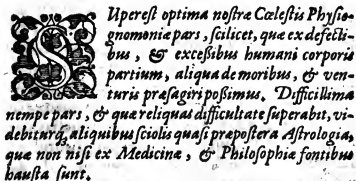 SUperest optima nostræ Cœlestis Physio-
gnomoniæ pars, scilicet, quæ ex defecti-
bus, & excessibus humani corporis
partium, aliqua de moribus, & ven-
turis præsagiri possimus. Difficillima
nempe pars, & quæ reliquas difficultate superabit, vi-
debiturq́; aliquibus sciolis quasi prepostera Astrologia,
quæ non nisi ex Medicinæ, & Philosophiæ fontibus
hausta sunt.